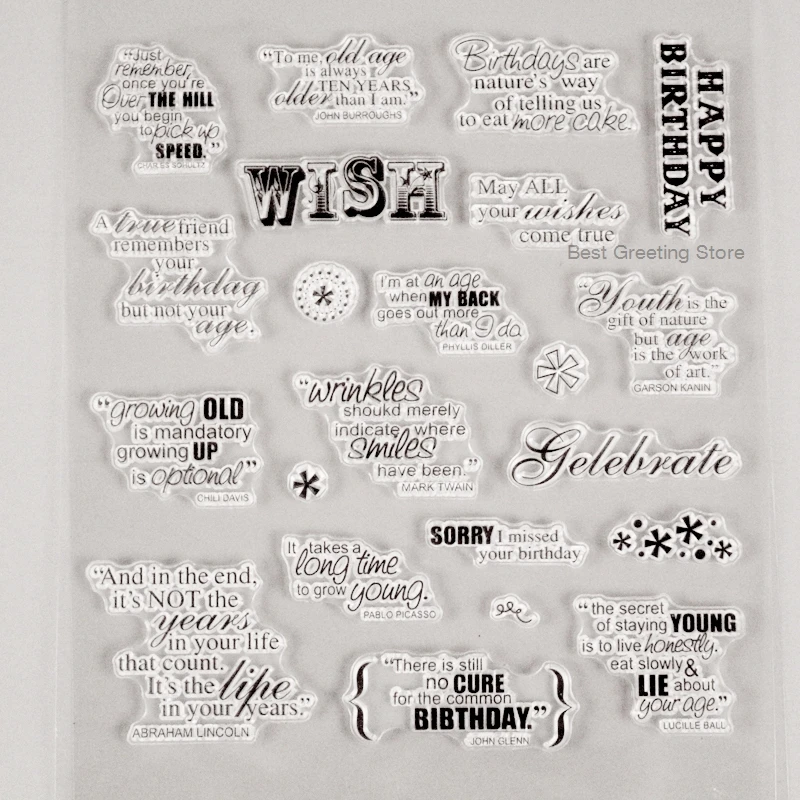 “Just
remember,
once you're
Over THE HILL
you begin
to pick up
SPEED.”
CHARLES SCHULTZ
“To me, old age
is always
TEN YEARS
older than I am.”
JOHN BURROUGHS
Birthdays are
nature's way
of telling us
to eat more cake.
HAPPY
BIRTHDAY
WISH
May ALL
your wishes
come true
Best Greeting Store
A true friend
remembers
your
birthday
but not your
age.
I'm at an age
when MY BACK
goes out more
than I do.
PHYLLIS DILLER
“Youth is the
gift of nature
but age
is the work
of art.”
GARSON KANIN
“growing OLD
is mandatory
growing UP
is optional”
CHILI DAVIS
“wrinkles
shoukd merely
indicate where
smiles
have been.”
MARK TWAIN
Gelebrate
SORRY I missed
your birthday
“And in the end,
it's NOT the
years
in your life
that count.
It's the life
in your years.”
ABRAHAM LINCOLN
It takes a
long time
to grow young.
PABLO PICASSO
“There is still
no CURE
for the common
BIRTHDAY.”
JOHN GLENN
“the secret
of staying YOUNG
is to live honestly.
eat slowly &
LIE about
your age.”
LUCILLE BALL